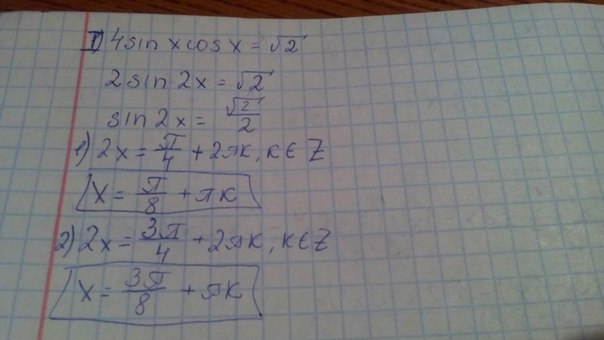 1) 4sin x cos x = √2
2 sin 2x = √2
sin 2x = √2/2
1) 2x = π/4 + 2πk, k ∈ Z
x = π/8 + πk
2) 2x = 3π/4 + 2πk, k ∈ Z
x = 3π/8 + πk